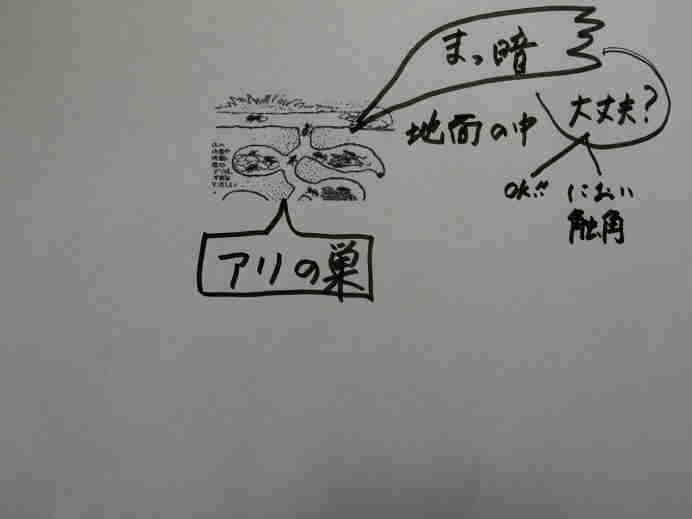 まっ暗
大丈夫?
地面の中
OK!! におい
触角
アリの巣